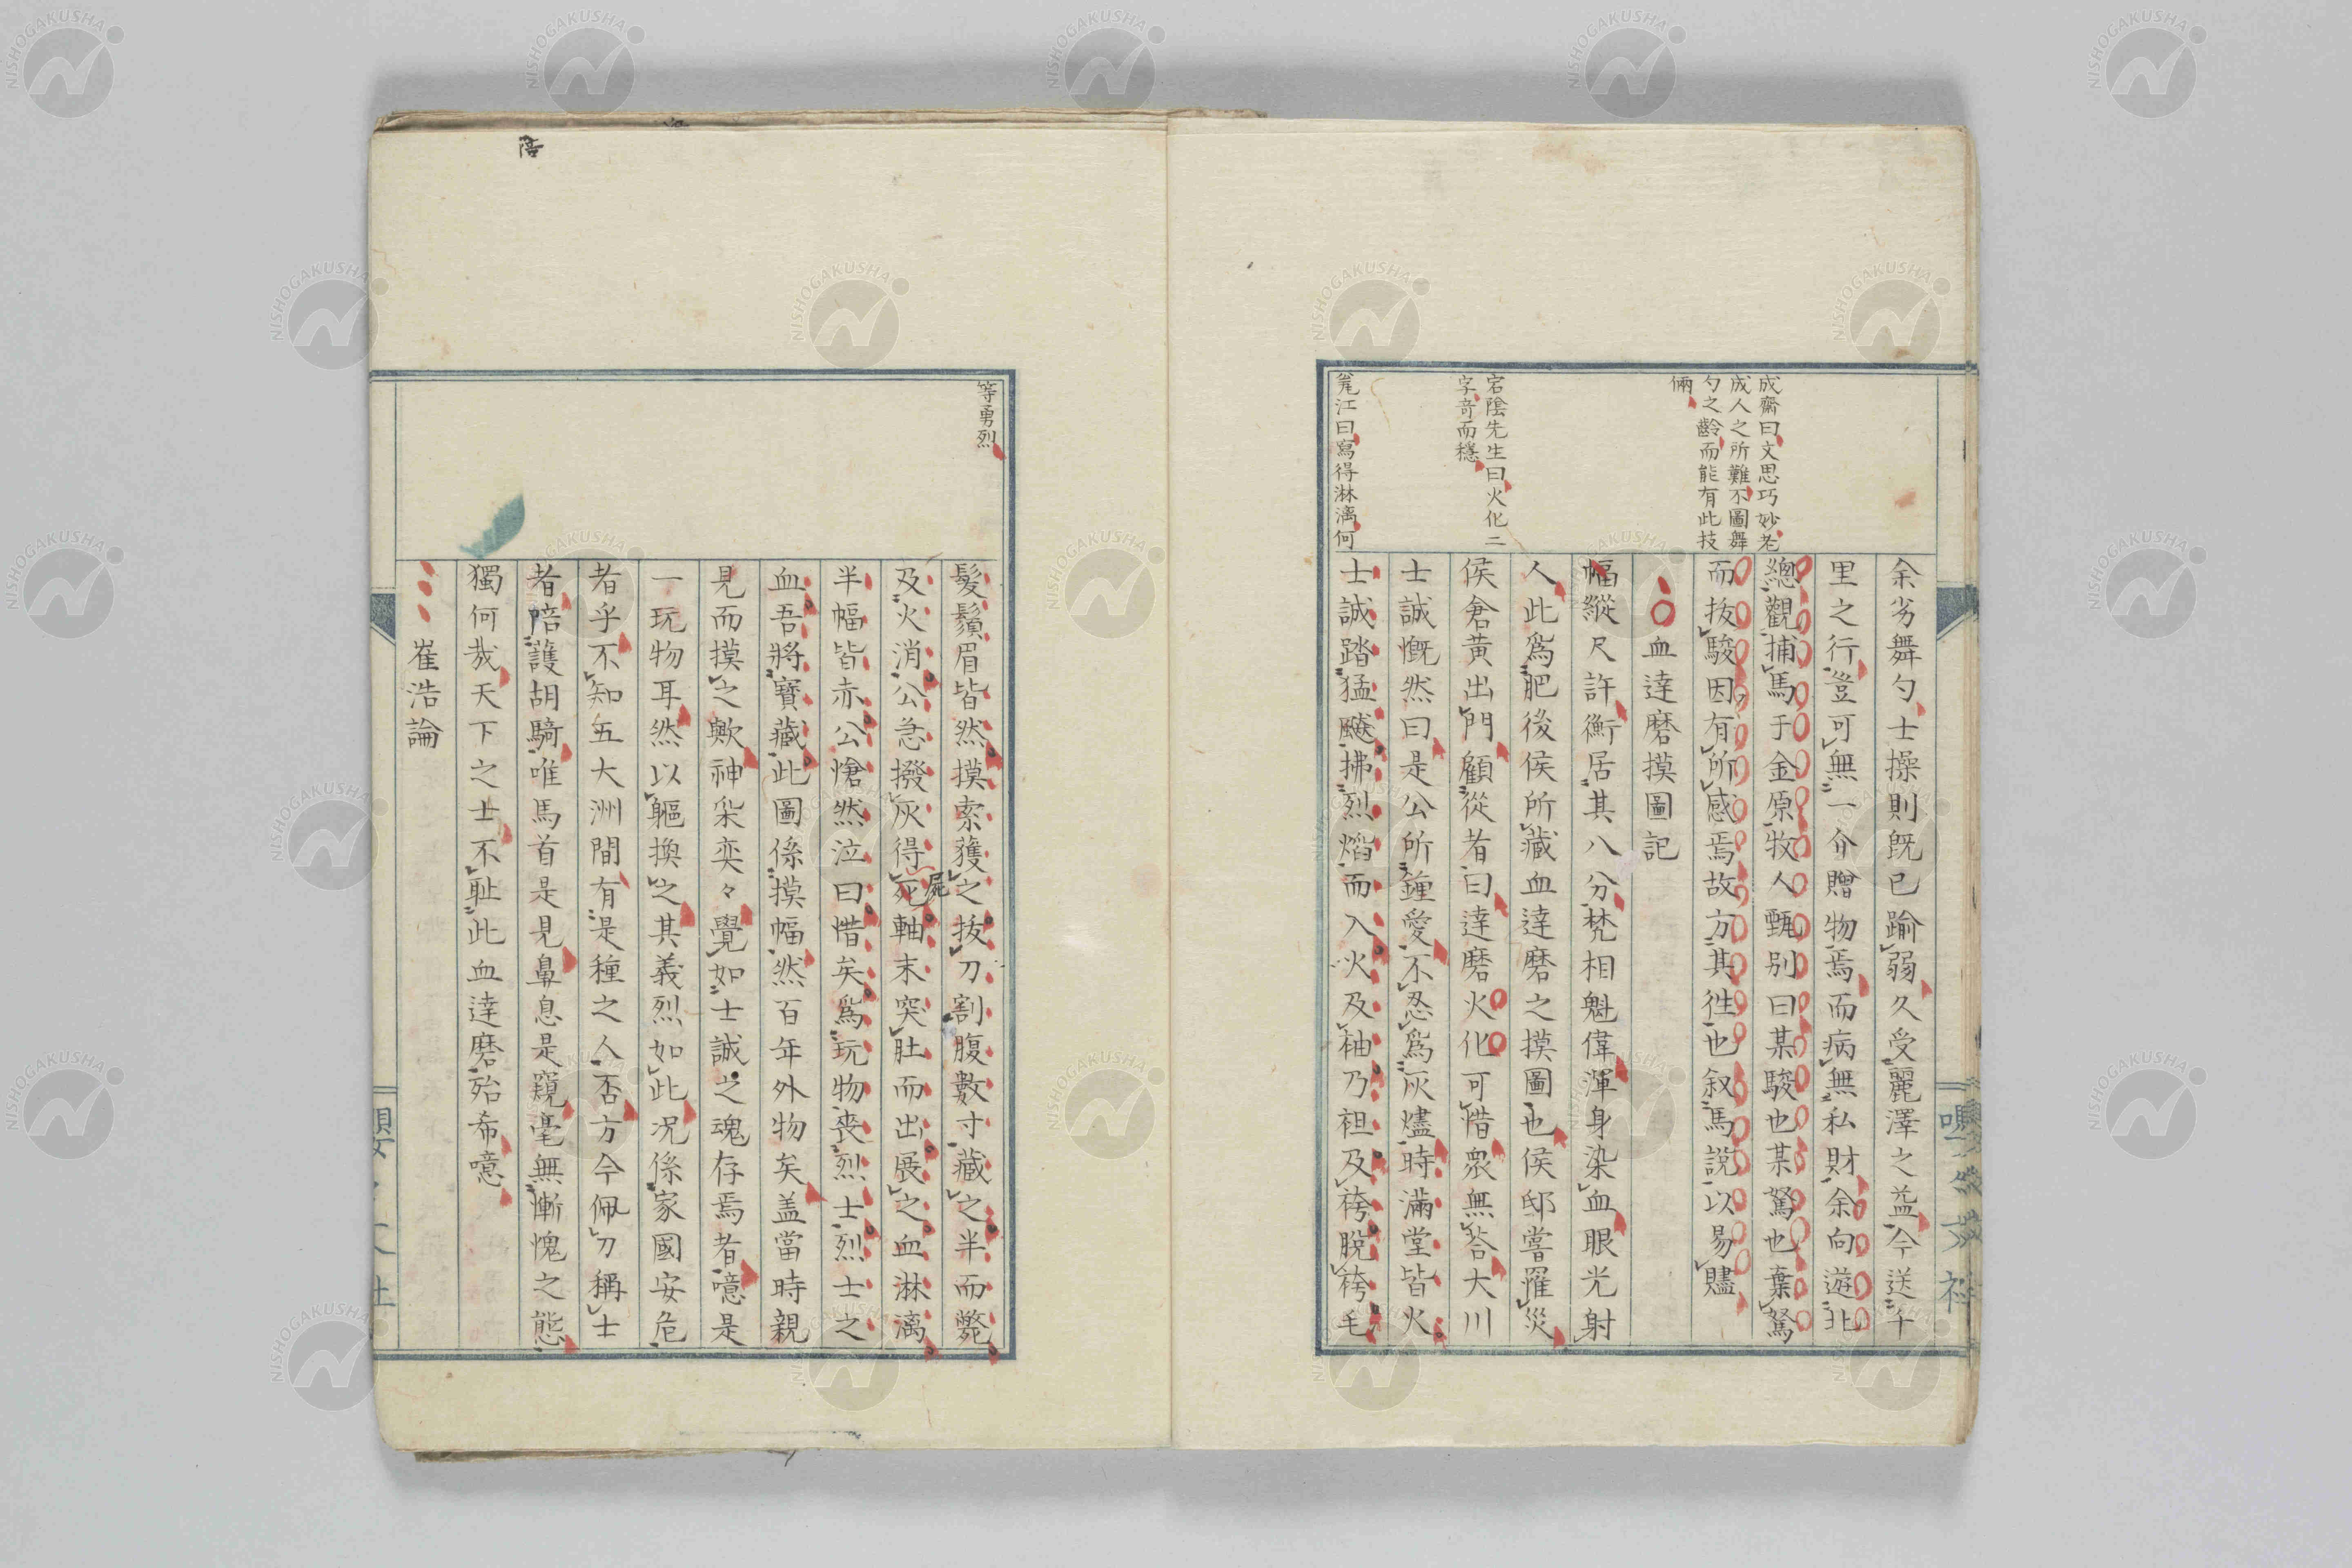 成齋曰文思巧妙老
成人之所難不圖舞
勺之齡而能有此技
倆
宕陰先生曰火化二
字奇而穩
毳江曰寫得淋漓何
余劣舞勺士操則既已踰弱久受麗澤之益今送千
里之行豈可無一介贈物焉而病無私財余向遊北
總觀捕馬于金原牧人甄別曰某駿也某駑也棄駑
而拔駿因有所感焉故方其徃也叙馬說以易贐
血達磨摸圖記
幅縱尺許衡居其八分梵相魁偉渾身染血眼光射
人此爲肥後侯所藏血達磨之摸圖也侯邸嘗罹災
侯倉黃出門顧從者曰達磨火化可惜衆無答大川
士誠慨然曰是公所鍾愛不忍爲灰燼時滿堂皆火
士誠踏猛飈拂烈熖而入火及袖乃袒及袴脫袴毛
等勇烈
髮鬚眉皆然摸索獲之拔刀割腹數寸藏之半而斃
及火消公急撥灰得死軸末突肚而出展之血淋漓
屍
半幅皆赤公愴然泣曰惜矣爲玩物喪烈士烈士之
血吾將寶藏此圖係摸幅然百年外物矣盖當時親
見而摸之歟神采奕々覺如士誠之魂存焉者噫是
一玩物耳然以軀換之其義烈如此况係家國安危
者乎不知五大洲間有是種之人否方今佩刀稱士
者陪護胡騎唯馬首是見鼻息是窺毫無慚愧之態
獨何哉天下之士不耻此血達磨殆希噫
崔浩論
陪